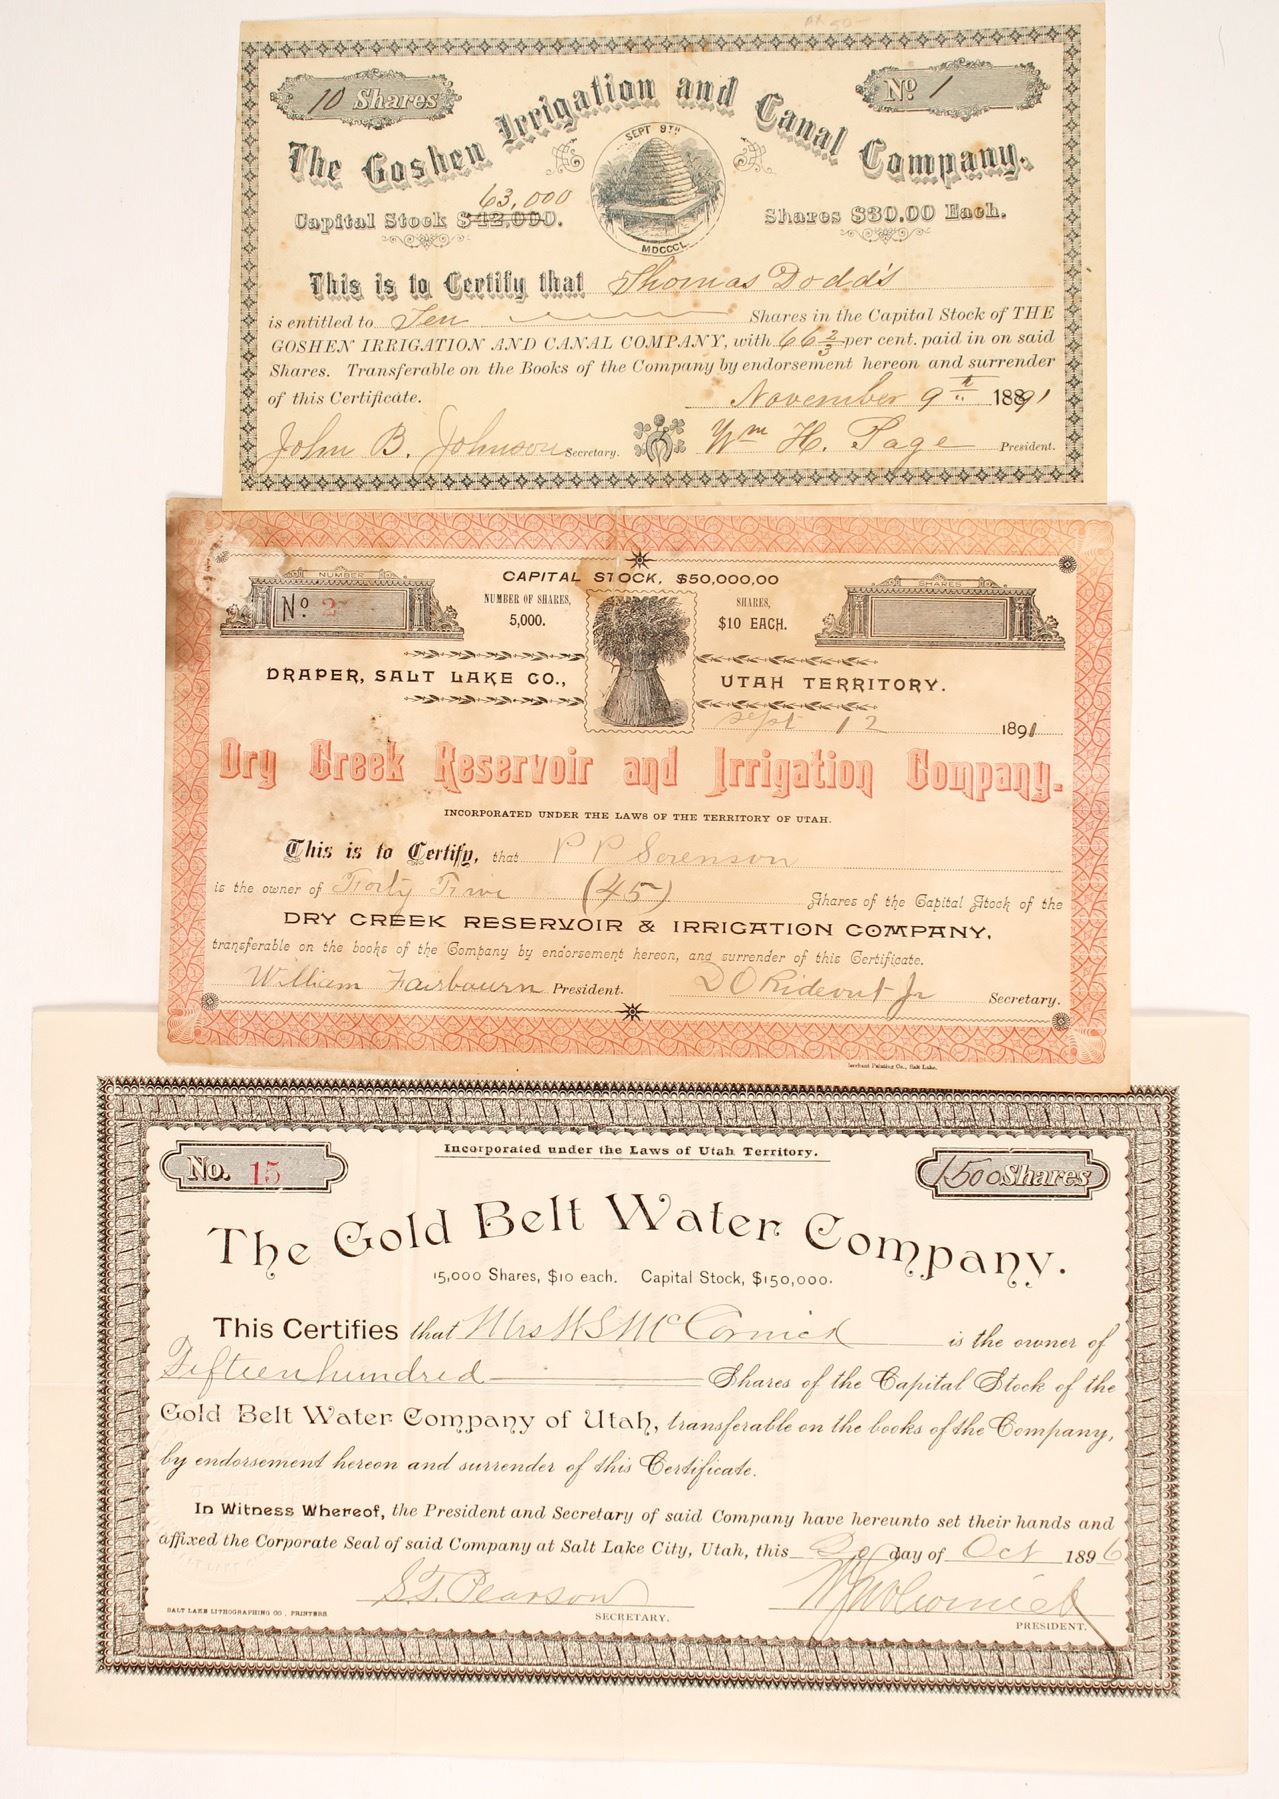 10 Shares
No 1
The Goshen Irrigation and Canal Company.
SEPT 9TH
MDCCCL
63,000
Capital Stock $42,000.
Shares $30.00 Each.
This is to Certify that Thomas Dodd's
is entitled to Ten Shares in the Capital Stock of THE
GOSHEN IRRIGATION AND CANAL COMPANY, with 66 2/3 per cent. paid in on said
Shares. Transferable on the Books of the Company by endorsement hereon and surrender
of this Certificate. November 9th 1891
John B. Johnson Secretary. Wm H. Page President.
NUMBER
No 2
CAPITAL STOCK, $50,000,00
SHARES
NUMBER OF SHARES,
5,000.
SHARES,
$10 EACH.
DRAPER, SALT LAKE CO., UTAH TERRITORY.
Sept 12 1891
Dry Creek Reservoir and Irrigation Company.
INCORPORATED UNDER THE LAWS OF THE TERRITORY OF UTAH.
This is to Certify, that P P Sorenson
is the owner of Forty Five (45) Shares of the Capital Stock of the
DRY CREEK RESERVOIR & IRRIGATION COMPANY,
transferable on the books of the Company by endorsement hereon, and surrender of this Certificate.
William Fairbourn President. D O Rideout Jr Secretary.
Printing Co., Salt Lake.
Incorporated under the Laws of Utah Territory.
No. 15
1500 Shares
The Gold Belt Water Company.
15,000 Shares, $10 each. Capital Stock, $150,000.
This Certifies that Mrs W S McCornick is the owner of
Fifteen hundred Shares of the Capital Stock of the
Gold Belt Water Company of Utah, transferable on the books of the Company,
by endorsement hereon and surrender of this Certificate.
In Witness Whereof, the President and Secretary of said Company have hereunto set their hands and
affixed the Corporate Seal of said Company at Salt Lake City, Utah, this day of Oct 1896
S. T. Pearson
SECRETARY.
PRESIDENT.
SALT LAKE LITHOGRAPHING CO., PRINTERS